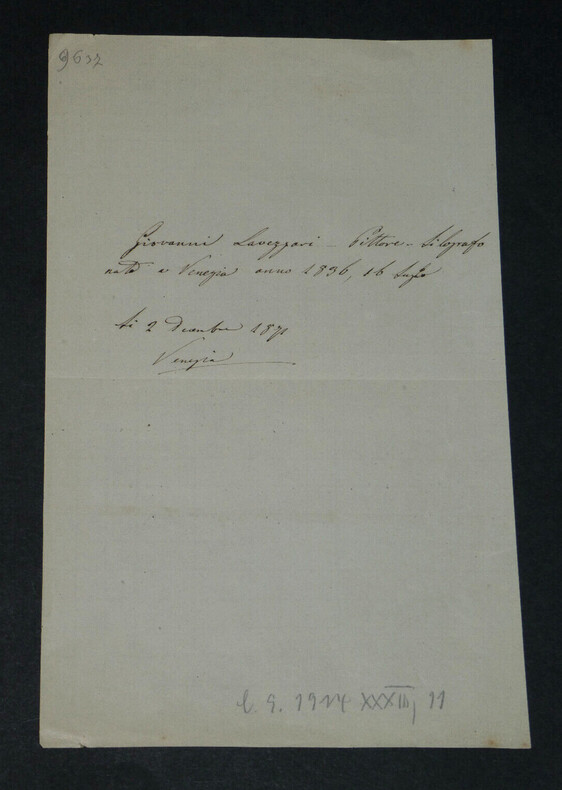 9637
Giovanni Lavezzari – Pittore – Silografo
nato a Venezia anno 1836, 16 Luglio
li 2 Decembre 1871
Venezia
1914 XXXIII, 11